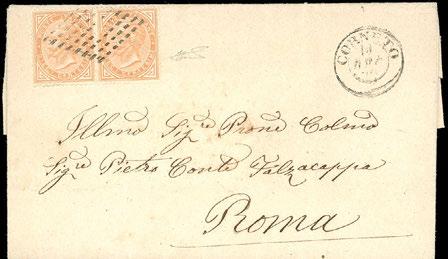 CORNETO
Illmo Sigre Prone Colmo
Sigre Pietro Conte Falzacappa
Roma